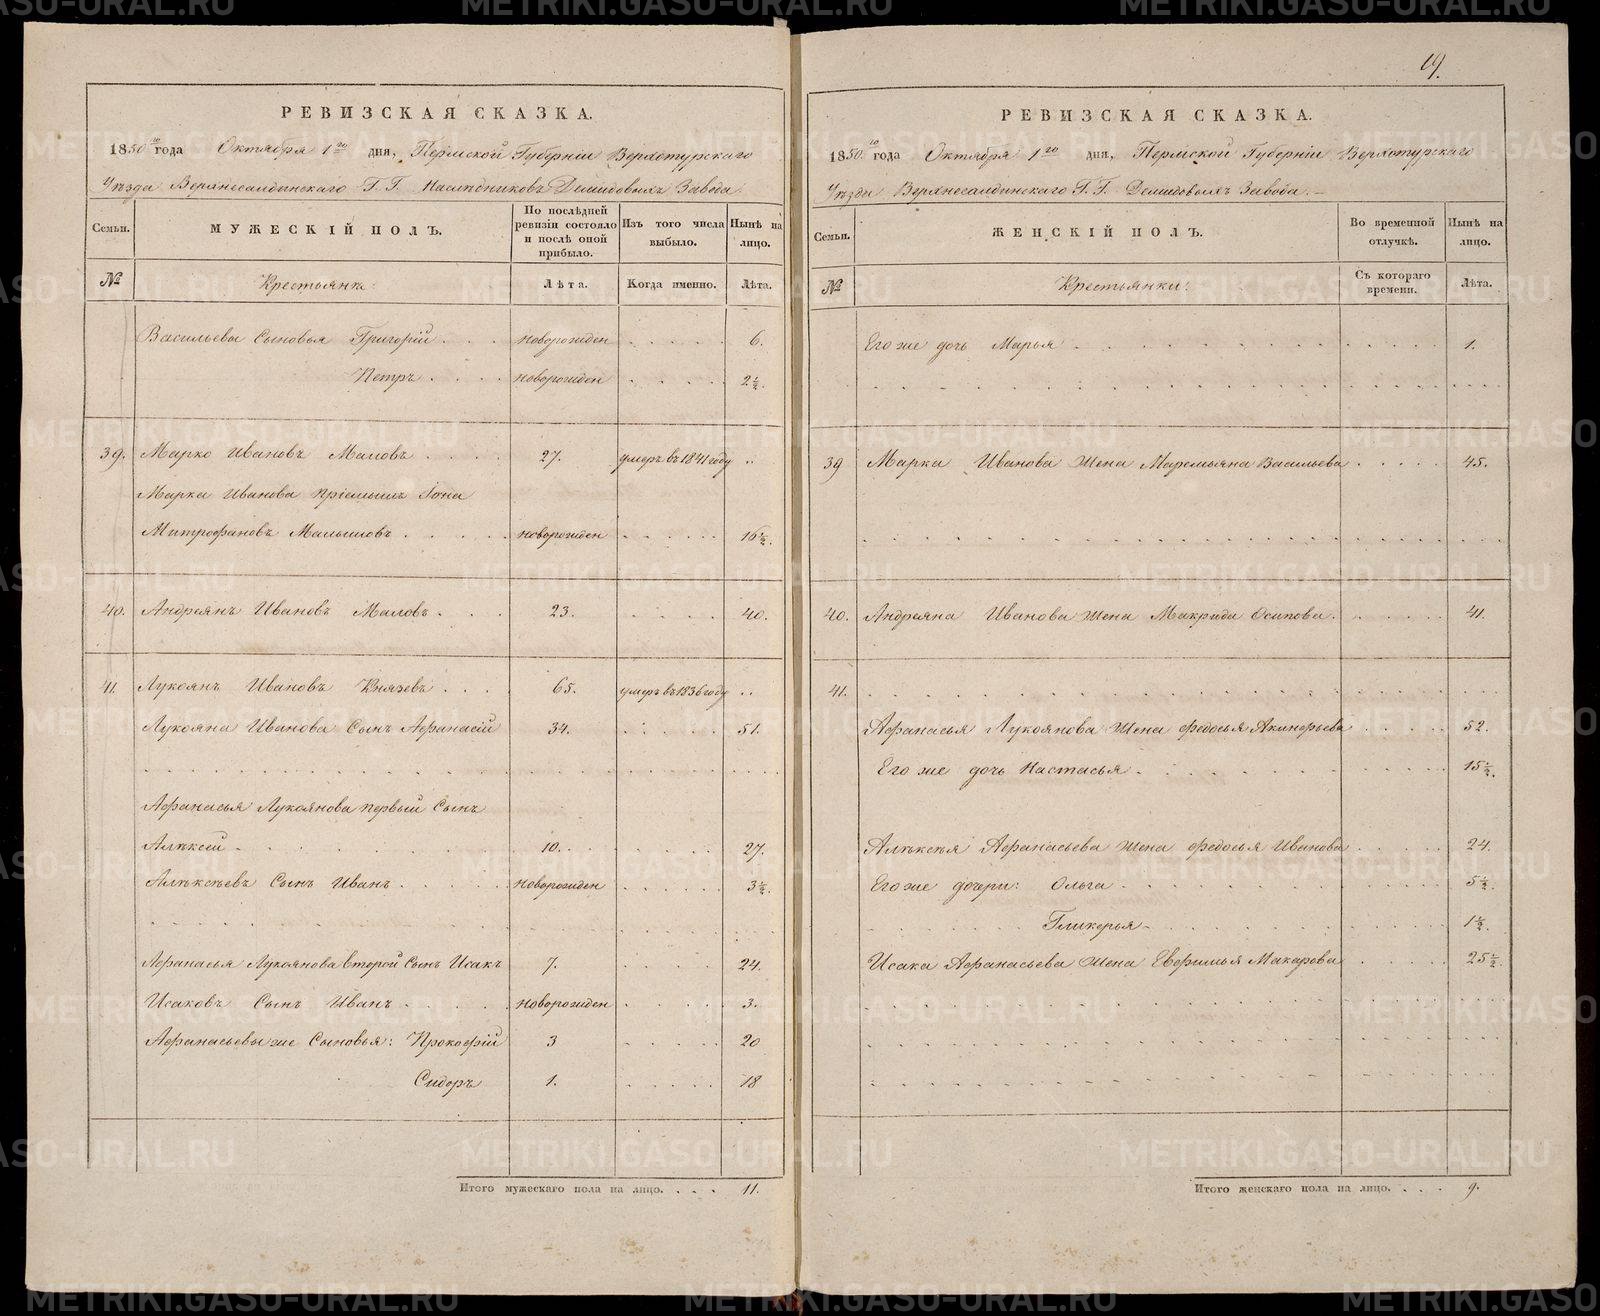 19.
РЕВИЗСКАЯ СКАЗКА.
1850го года Октября 1го дня, Пермской Губернiи Верхотурскаго
Уѣзда Верхнесалдинскаго Г.Г. Наслѣдниковъ Демидовыхъ Завода.
Семьи.
МУЖЕСКIЙ ПОЛЪ.
По послѣдней ревизiи состояло и послѣ оной прибыло.
Изъ того числа выбыло.
Нынѣ на лицо.
№
Крестьяне.
Лѣта.
Когда именно.
Лѣта.
Васильевы Сыновья Григорiй новорожден 6.
Петръ новорожден 2½.
39. Марко Ивановъ Маловъ 27. умеръ въ 1841 году
Марка Иванова прiемышъ Iона
Митрофановъ Малышовъ новорожден 16½.
40. Андреянъ Ивановъ Маловъ 23. 40.
41. Лукоянъ Ивановъ Князевъ 65. умеръ въ 1836 году
Лукояна Иванова Сынъ Афанасiй 34. 51.
Афанасья Лукоянова первый Сынъ
Алѣксей 10. 27.
Алѣксѣевъ Сынъ Иванъ новорожден 3½.
Афанасья Лукоянова второй Сынъ Исакъ 7. 24.
Исаковъ Сынъ Иванъ новорожден 3.
Афанасьевы же Сыновья: Прокофiй 3 20
Сидоръ 1. 18
Итого мужескаго пола на лицо. 11.
РЕВИЗСКАЯ СКАЗКА.
1850го года Октября 1го дня, Пермской Губернiи Верхотурскаго
Уѣзда Верхнесалдинскаго Г.Г. Демидовыхъ Завода.
Семьи.
ЖЕНСКIЙ ПОЛЪ.
Во временной отлучкѣ.
Нынѣ на лицо.
№
Крестьянки.
Съ котораго времени.
Лѣта.
Его же дочь Марья 1.
39 Марка Иванова жена Маремьяна Васильева 45.
40. Андреяна Иванова жена Макрида Осипова 41.
41.
Афанасья Лукоянова жена Федосья Акинфьева 52.
Его же дочь Настасья 15½.
Алѣксѣя Афанасьева жена Федосья Иванова 24.
Его же дочери: Ольга 5½.
Гликерья 1½.
Исака Афанасьева жена Евфимья Макарова 25½.
Итого женскаго пола на лицо. 9.
METRIKI.GASO-URAL.RU